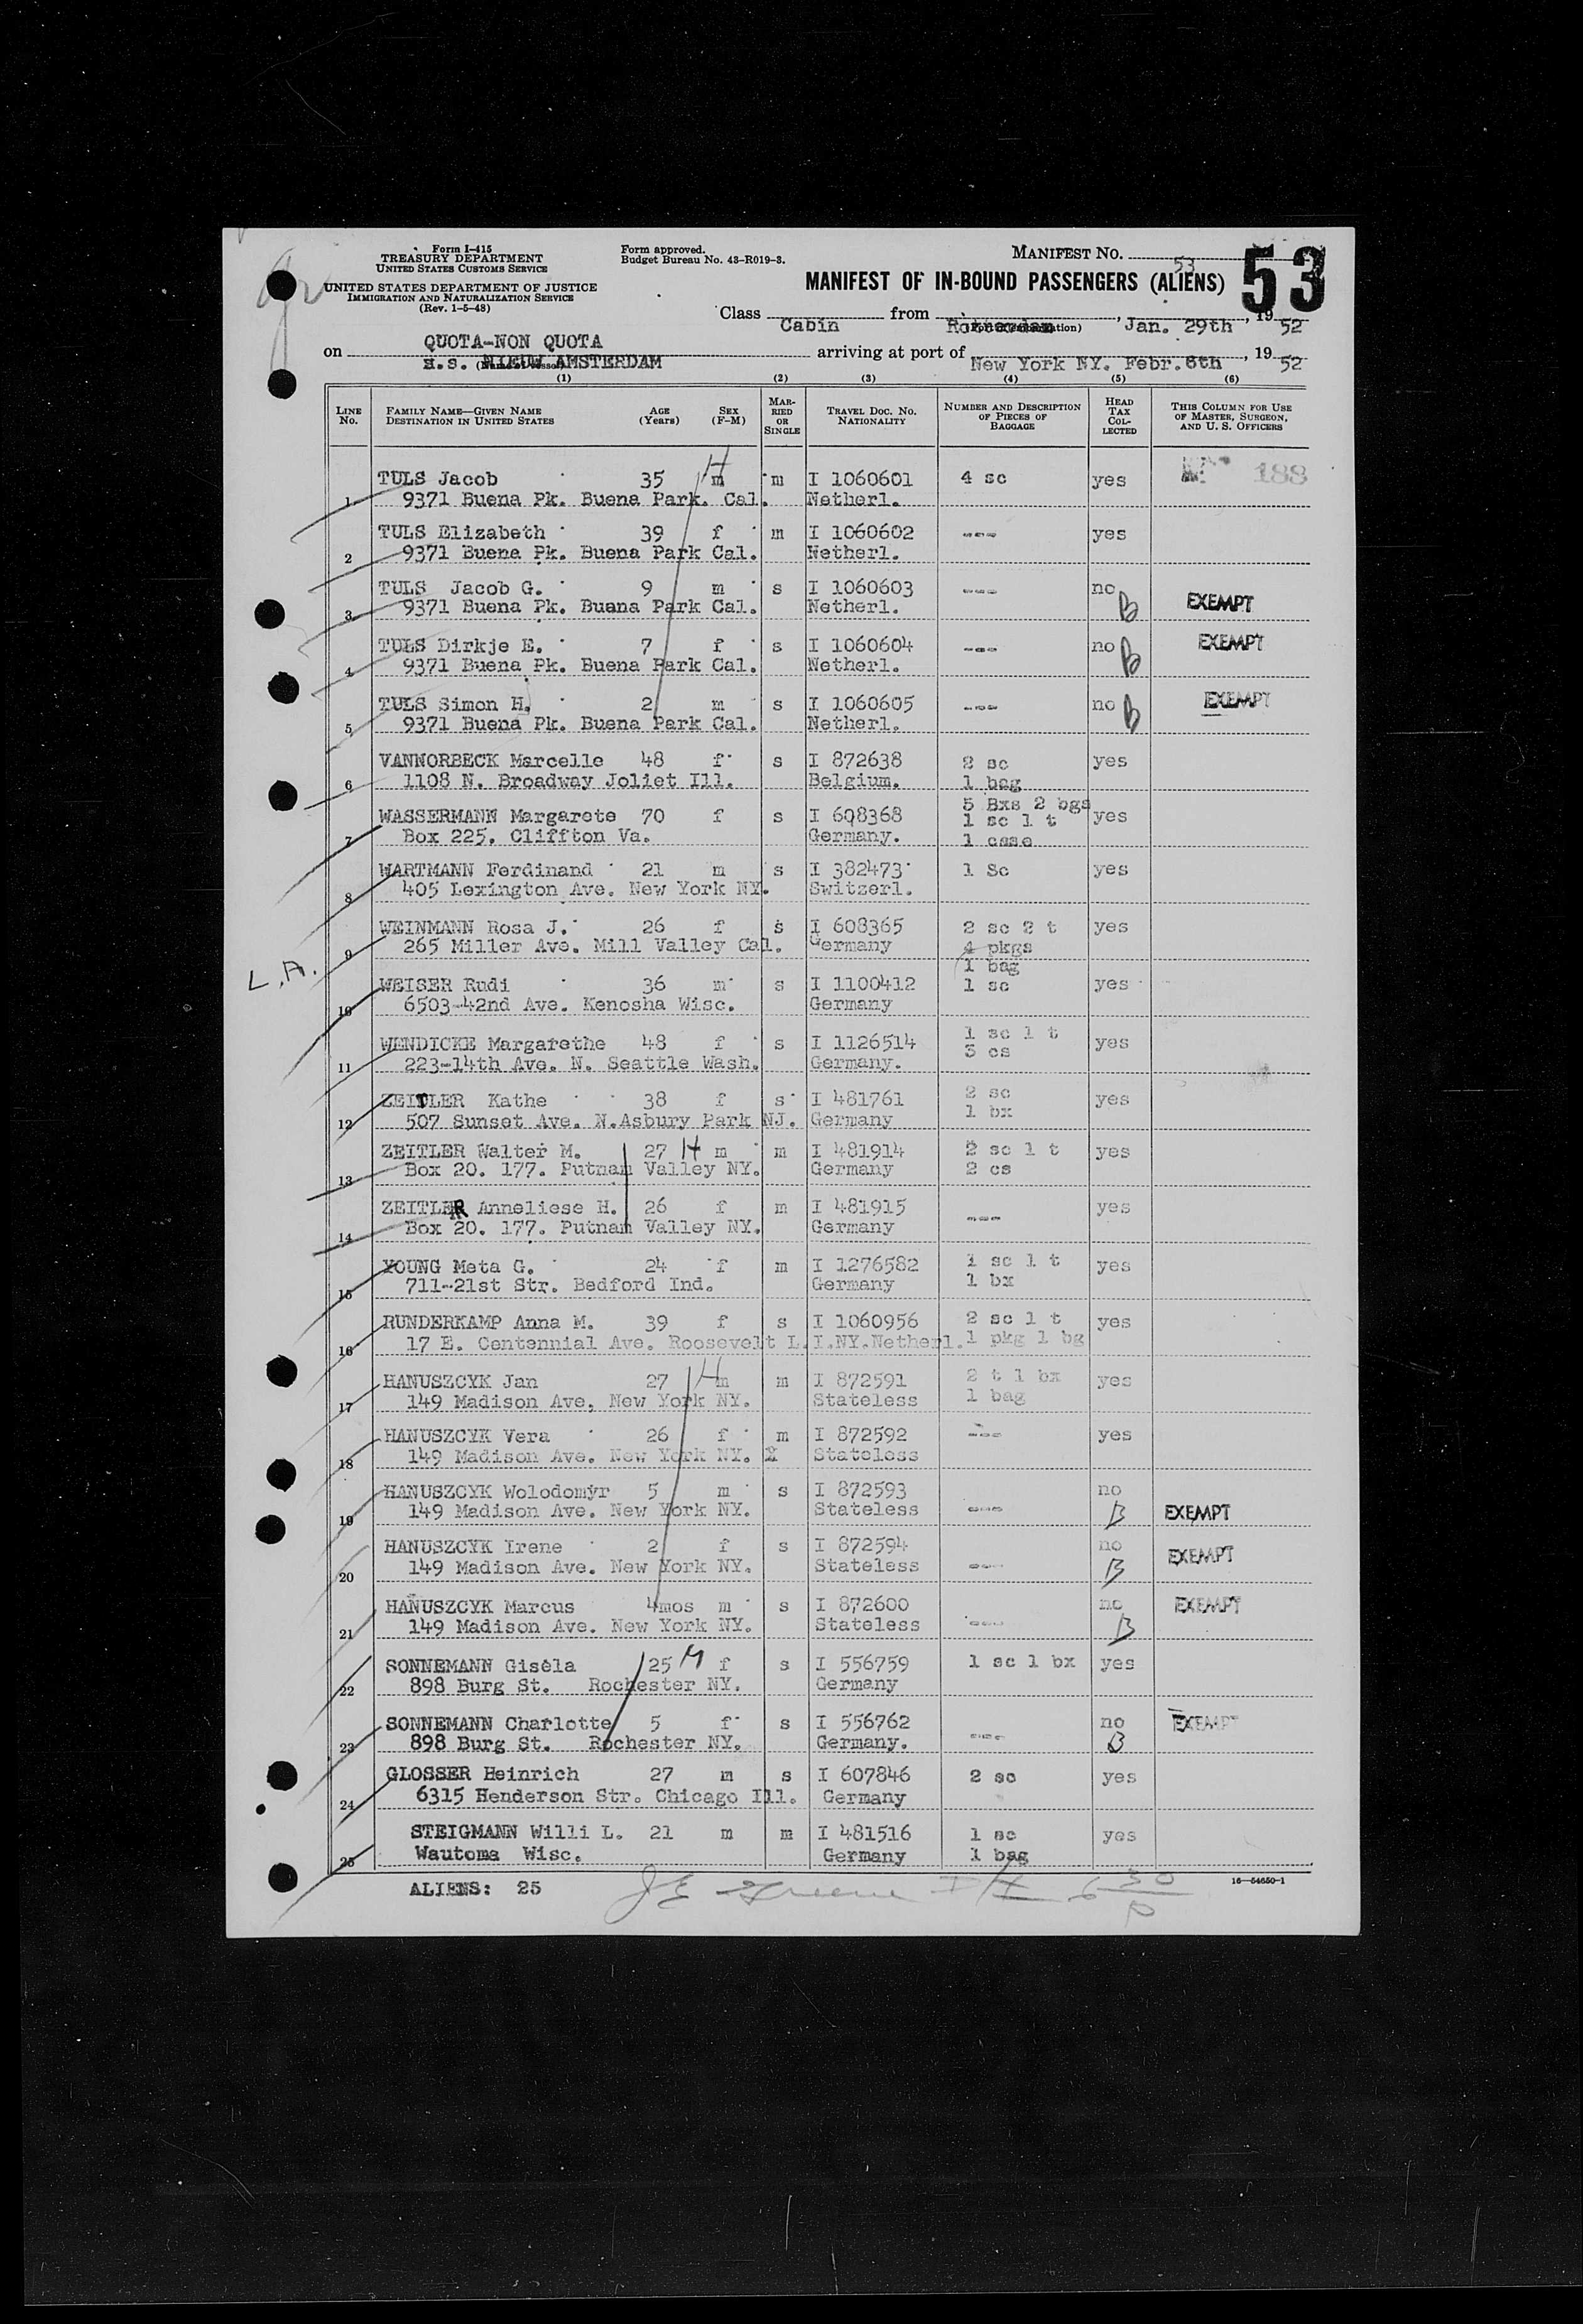 Form I-415
TREASURY DEPARTMENT
UNITED STATES CUSTOMS SERVICE
UNITED STATES DEPARTMENT OF JUSTICE
IMMIGRATION AND NATURALIZATION SERVICE
(Rev. 1-5-48)
Form approved.
Budget Bureau No. 43-R019-3.
MANIFEST No. 53
53
MANIFEST OF IN-BOUND PASSENGERS (ALIENS)
Class Cabin from Rotterdam, Jan. 29th, 1952
QUOTA-NON QUOTA
on NIEUW AMSTERDAM arriving at port of New York NY. Febr. 8th, 1952
(1) (2) (3) (4) (5) (6)
LINE No. FAMILY NAME—GIVEN NAME DESTINATION IN UNITED STATES AGE (Years) SEX (F-M) MARRIED OR SINGLE TRAVEL DOC. NO. NATIONALITY NUMBER AND DESCRIPTION OF PIECES OF BAGGAGE HEAD TAX COLLECTED THIS COLUMN FOR USE OF MASTER, SURGEON, AND U. S. OFFICERS
TULS Jacob 35 m m I 1060601 4 sc yes 188
1 9371 Buena Pk. Buena Park. Cal. Netherl.
TULS Elizabeth 39 f m I 1060602 --- yes
2 9371 Buena Pk. Buena Park Cal. Netherl.
TULS Jacob G. 9 m s I 1060603 --- no
3 9371 Buena Pk. Buana Park Cal. Netherl. B EXEMPT
TULS Dirkje E. 7 f s I 1060604 --- no B EXEMPT
4 9371 Buena Pk. Buena Park Cal. Netherl.
TULS Simon H. 2 m s I 1060605 --- no B EXEMPT
5 9371 Buena Pk. Buena Park Cal. Netherl.
VANNORBECK Marcelle 48 f s I 872638 2 sc yes
6 1108 N. Broadway Joliet Ill. Belgium. 1 bag
5 Bxs 2 bgs
WASSERMANN Margarete 70 f s I 698368 1 sc 1 t yes
7 Box 225. Cliffton Va. Germany. 1 case
WARTMANN Ferdinand 21 m s I 382473 1 Sc yes
8 405 Lexington Ave. New York NY. Switzerl.
WEINMANN Rosa J. 26 f s I 608365 2 sc 2 t yes
9 265 Miller Ave. Mill Valley Cal. Germany 4 pkgs
1 bag
L.A.
WEISER Rudi 36 m s I 1100412 1 sc yes
10 6503-42nd Ave. Kenosha Wisc. Germany
WENDICKE Margarethe 48 f s I 1126514 1 sc 1 t yes
11 223-14th Ave. N. Seattle Wash. Germany. 3 cs
ZEITLER Kathe 38 f s I 481761 2 sc yes
12 507 Sunset Ave. N.Asbury Park NJ. Germany 1 bx
ZEITLER Walter M. 27 H m m I 481914 2 sc 1 t yes
13 Box 20. 177. Putnam Valley NY. Germany 2 cs
ZEITLER Anneliese H. 26 f m I 481915 --- yes
14 Box 20. 177. Putnam Valley NY. Germany
YOUNG Meta G. 24 f m I 1276582 1 sc 1 t yes
15 711-21st Str. Bedford Ind. Germany 1 bx
RUNDERKAMP Anna M. 39 f s I 1060956 2 sc 1 t yes
16 17 E. Centennial Ave. Roosevelt L.I.NY. Netherl. 1 pkg 1 bg
HANUSZCYK Jan 27 H m m I 872591 2 t 1 bx yes
17 149 Madison Ave, New York NY. Stateless 1 bag
HANUSZCYK Vera 26 f m I 872592 --- yes
18 149 Madison Ave. New York NY. Stateless
HANUSZCYK Wolodomyr 5 m s I 872593 no
19 149 Madison Ave. New York NY. Stateless --- B EXEMPT
HANUSZCYK Irene 2 f s I 872594 no EXEMPT
20 149 Madison Ave. New York NY. Stateless --- B
HANUSZCYK Marcus 4mos m s I 872600 no EXEMPT
21 149 Madison Ave. New York NY. Stateless --- B
SONNEMANN Gisela 25 f s I 556759 1 sc 1 bx yes
22 898 Burg St. Rochester NY. Germany
SONNEMANN Charlotte 5 f s I 556762 no EXEMPT
23 898 Burg St. Rochester NY. Germany. --- B
GLOSSER Heinrich 27 m s I 607846 2 sc yes
24 6315 Henderson Str. Chicago Ill. Germany
STEIGMANN Willi L. 21 m m I 481516 1 sc yes
25 Wautoma Wisc. Germany 1 bag
ALIENS: 25
16—54650-1